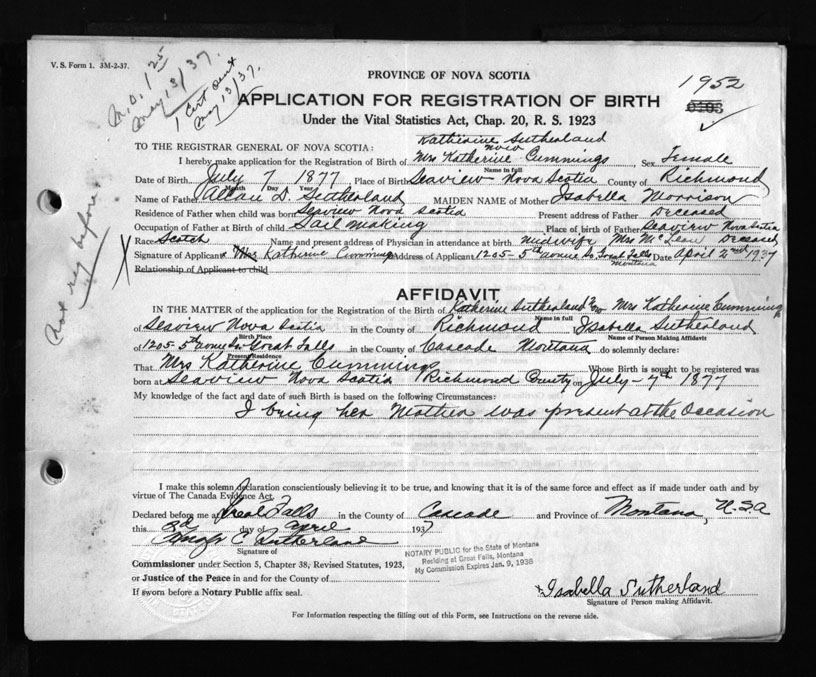 V. S. Form 1. 3M-2-37.
May 13/37.
1 Cert sent
May 13/37.
PROVINCE OF NOVA SCOTIA
1952
APPLICATION FOR REGISTRATION OF BIRTH
Under the Vital Statistics Act, Chap. 20, R. S. 1923
Katherine Sutherland
now
TO THE REGISTRAR GENERAL OF NOVA SCOTIA:
I hereby make application for the Registration of Birth of Mrs Katherine Cummings Sex Female
Name in full
Date of Birth July 7 1877 Place of Birth Seaview Nova Scotia County of Richmond
Month Day Year
Name of Father Allan D. Sutherland MAIDEN NAME of Mother Isabella Morrison
Residence of Father when child was born Seaview Nova Scotia Present address of Father Deceased
Occupation of Father at Birth of child Sail making Place of birth of Father Seaview Nova Scotia
Race Scotch Name and present address of Physician in attendance at birth midwife Mrs McLean Deceased
Signature of Applicant x Mrs Katherine Cummings Address of Applicant 1205-5th Avenue So. Great Falls Montana Date April 2nd 1937
Relationship of Applicant to child
Not reg before.
AFFIDAVIT
IN THE MATTER of the application for the Registration of the Birth of Katherine Sutherland now Mrs Katherine Cummings
Name in full
of Seaview Nova Scotia in the County of Richmond Isabella Sutherland
Birth Place Name of Person Making Affidavit
of 1205-5th Avenue So Great Falls in the County of Cascade Montana do solemnly declare:
Present Residence
That Mrs Katherine Cummings Whose Birth is sought to be registered was
born at Seaview Nova Scotia Richmond County on July-7th 1877
My knowledge of the fact and date of such Birth is based on the following Circumstances:
I being her Mother was present at the Occasion
I make this solemn declaration conscientiously believing it to be true, and knowing that it is of the same force and effect as if made under oath and by
virtue of The Canada Evidence Act.
Declared before me at Great Falls in the County of Cascade and Province of Montana, U.S.A
this 3d day of April 1937
Sutherland
Signature of
NOTARY PUBLIC for the State of Montana
Residing at Great Falls, Montana
My Commission Expires Jan. 9, 1938
Commissioner under Section 5, Chapter 38, Revised Statutes, 1923,
or Justice of the Peace in and for the County of
If sworn before a Notary Public affix seal.
x Isabella Sutherland
Signature of Person making Affidavit.
For Information respecting the filling out of this Form, see Instructions on the reverse side.